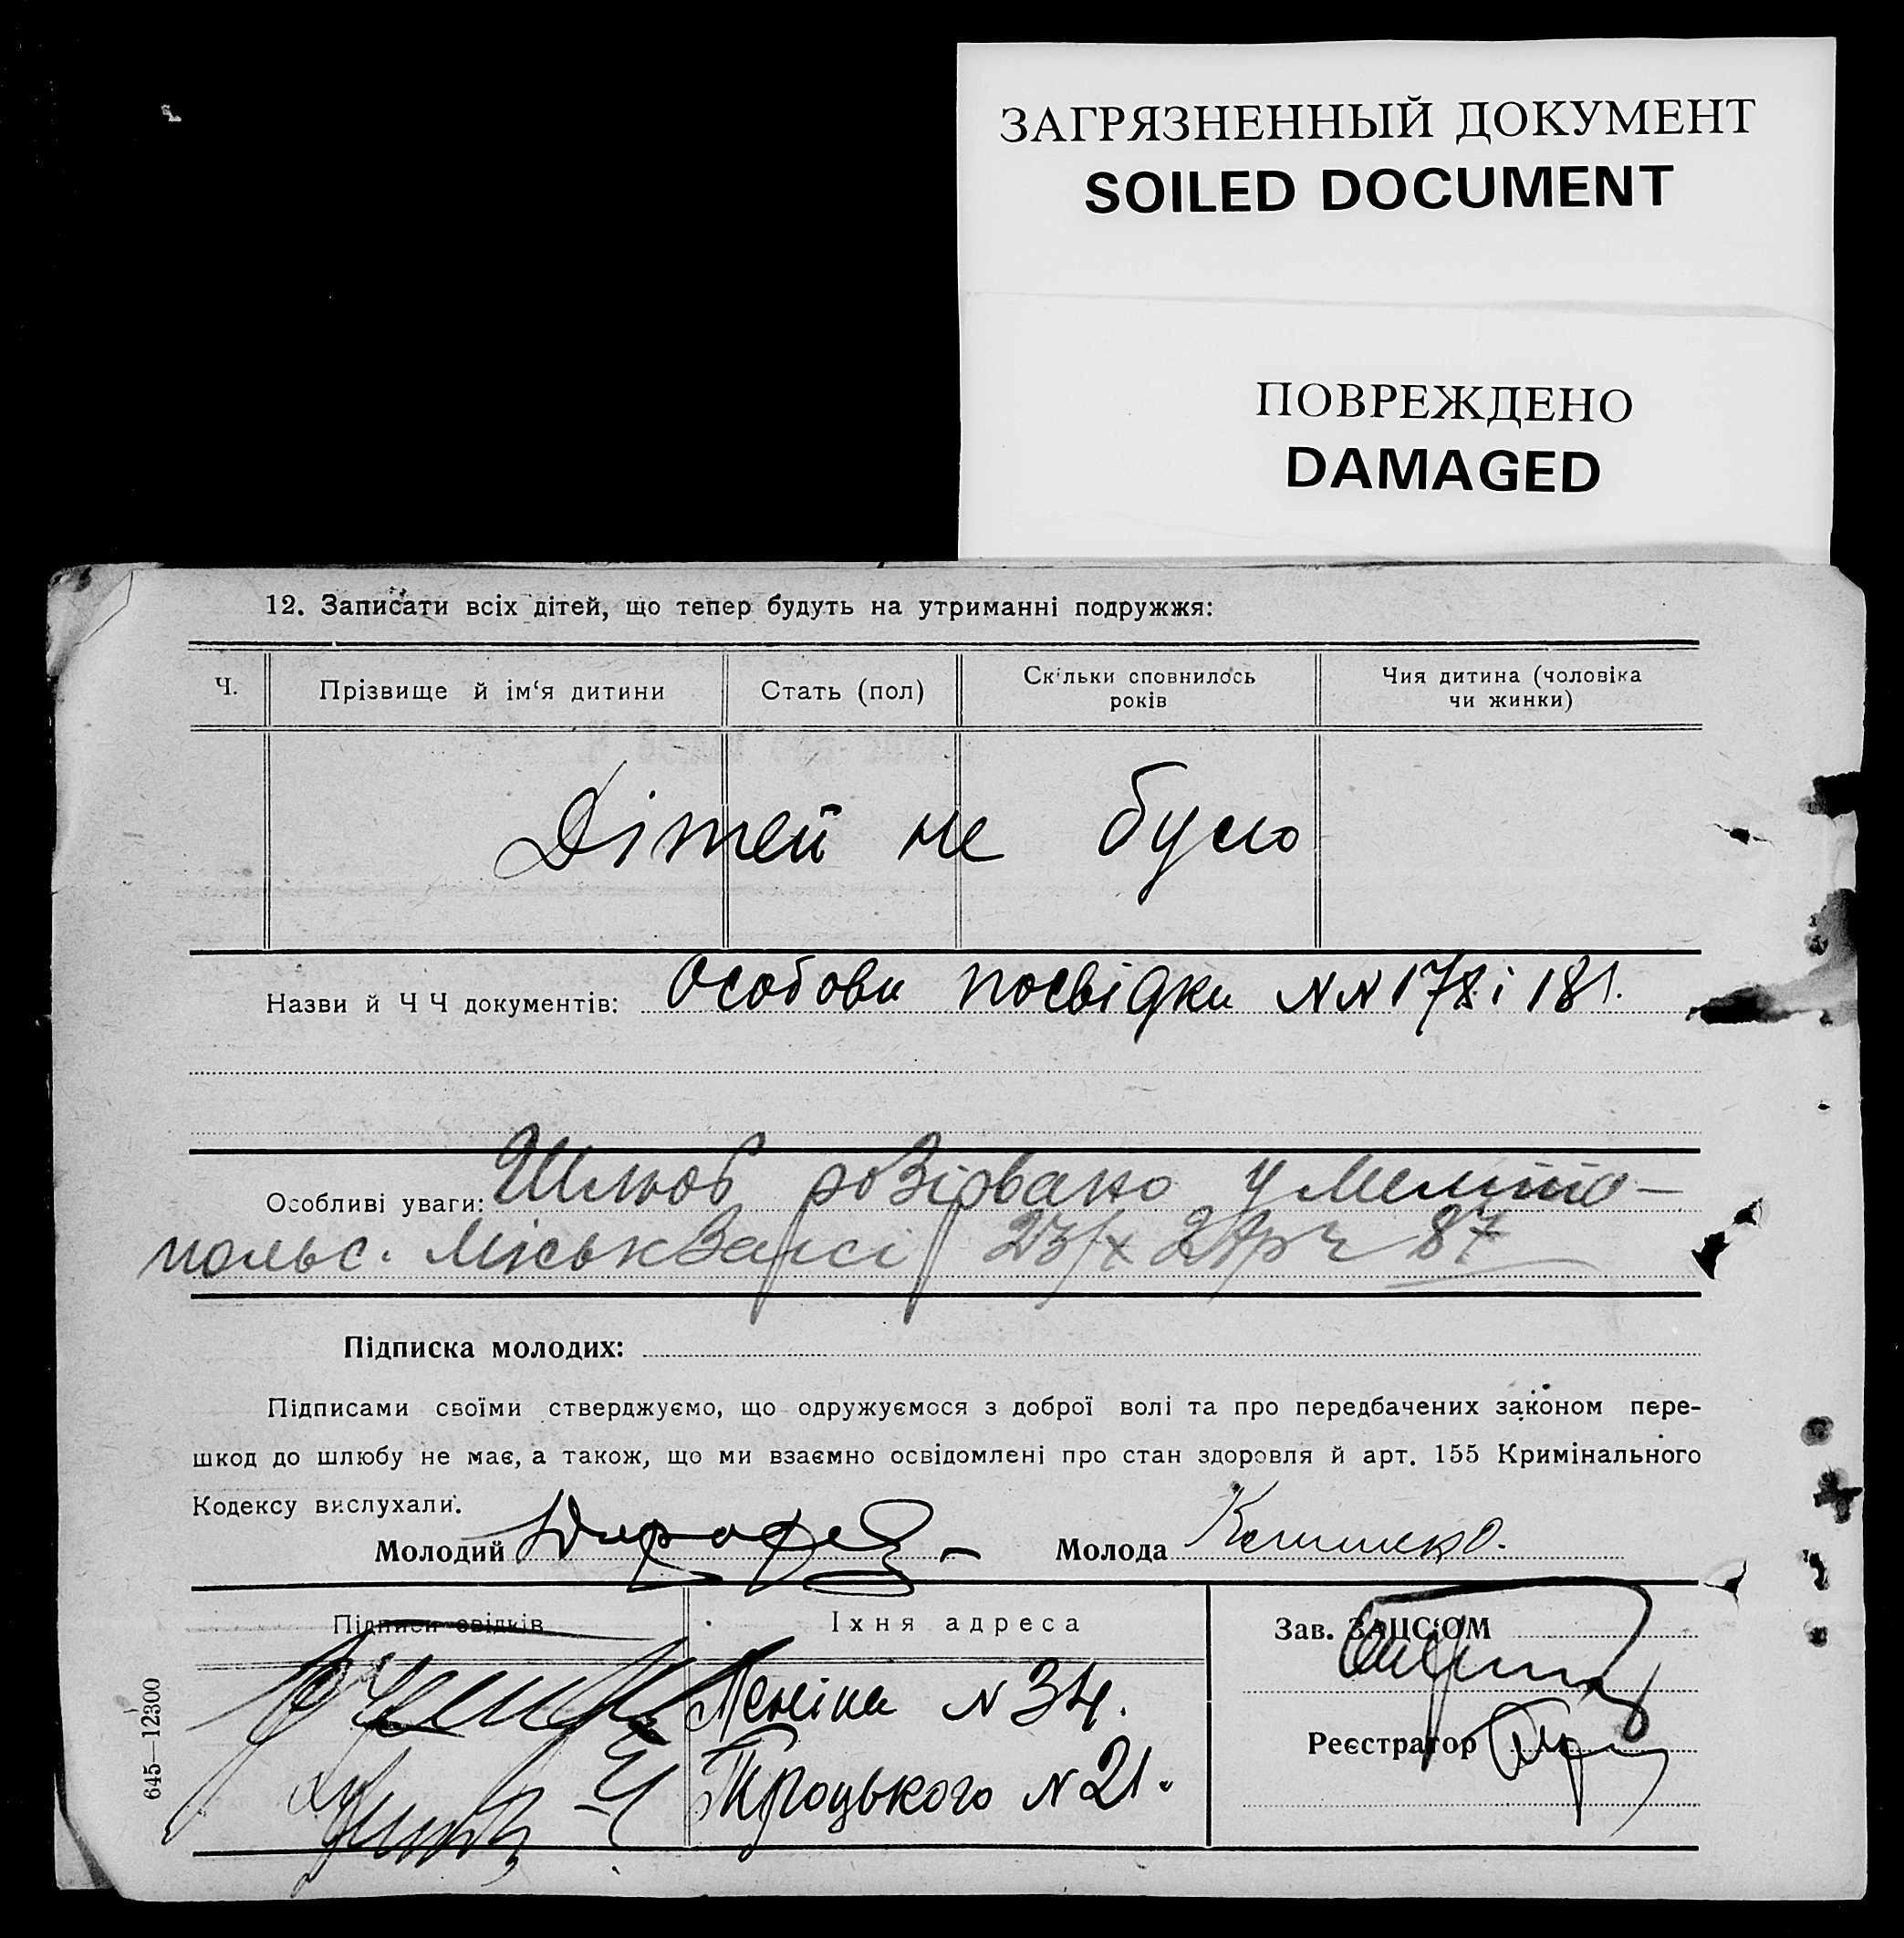 ЗАГРЯЗНЕННЫЙ ДОКУМЕНТ
SOILED DOCUMENT
ПОВРЕЖДЕНО
DAMAGED
12. Записати всіх дітей, що тепер будуть на утриманні подружжя:
Ч.
Прізвище й ім'я дитини
Стать (пол)
Скільки сповнилось
років
Чия дитина (чоловіка
чи жинки)
Дітей не було
Назви й Ч Ч документів: Особови посвідки NN 178 і 181.
Особливі уваги: Шлюб розірвано у Мелито-
польс. Міськзагсі 23/X 29р ч 87
Підписка молодих:
Підписами своїми стверджуємо, що одружуємося з доброї волі та про передбачених законом пере-
шкод до шлюбу не має, а також, що ми взаємно освідомлені про стан здоровля й арт. 155 Кримінального
Кодексу вислухали.
Молодий
Молода
Підписи свідків
Іхня адреса
Зав. ЗАЦС'ОМ
Леніна N 34.
Реєстратор
Троцького N 21.
645—12300